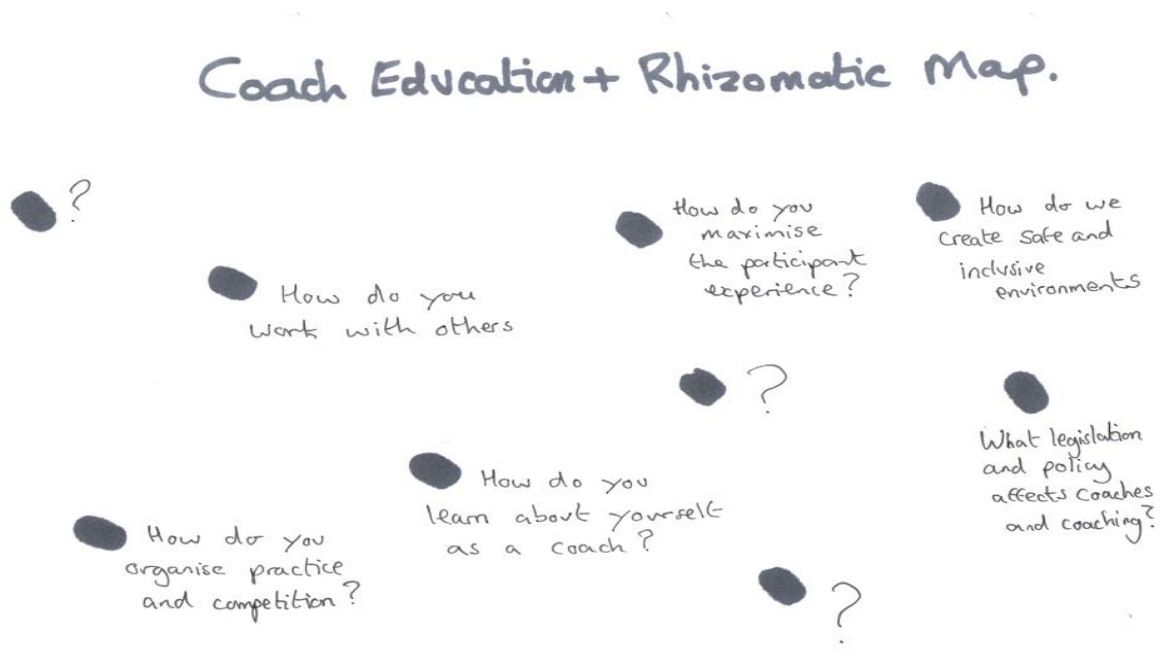 Coach Education + Rhizomatic Map.
?
How do you
work with others
How do you
maximise
the participant
experience?
How do we
create safe and
inclusive
environments
?
What legislation
and policy
affects coaches
and coaching?
How do you
learn about yourself
as a coach?
How do you
organise practice
and competition?
?